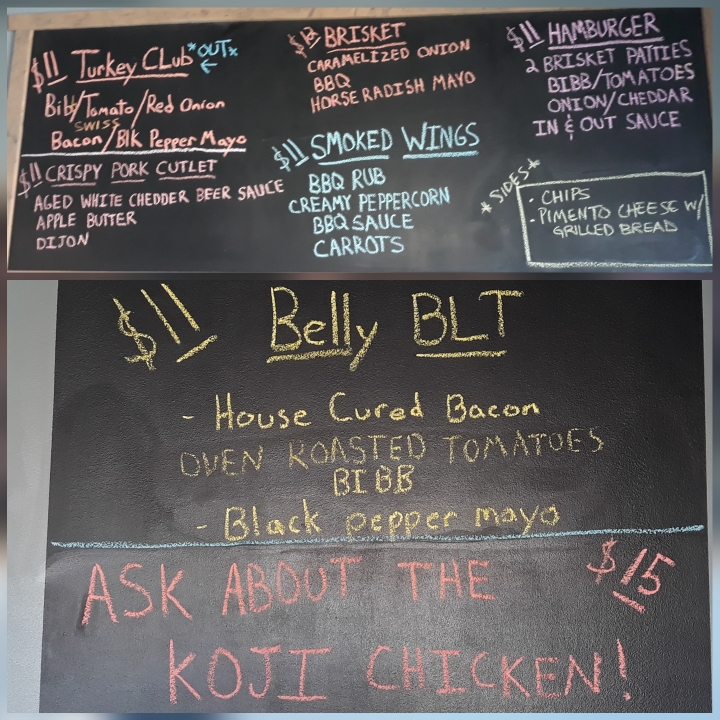 $11 Turkey CLub *OUT*
Bibb/Tomato/Red Onion
SWISS
Bacon/Blk Pepper Mayo
$11 CRISPY PORK CUTLET
AGED WHITE CHEDDER BEER SAUCE
APPLE BUTTER
DIJON
BRISKET
CARAMELIZED ONION
BBQ
HORSE RADISH MAYO
$11 SMOKED WINGS
BBQ RUB
CREAMY PEPPERCORN
BBQ SAUCE
CARROTS
$11 HAMBURGER
2 BRISKET PATTIES
BIBB/TOMATOES
ONION/CHEDDAR
IN & OUT SAUCE
*SIDES*
- CHIPS
- PIMENTO CHEESE W/
GRILLED BREAD
$11 Belly BLT
- House Cured Bacon
OVEN ROASTED TOMATOES
BIBB
- Black pepper mayo
ASK ABOUT THE $15
KOJI CHICKEN!